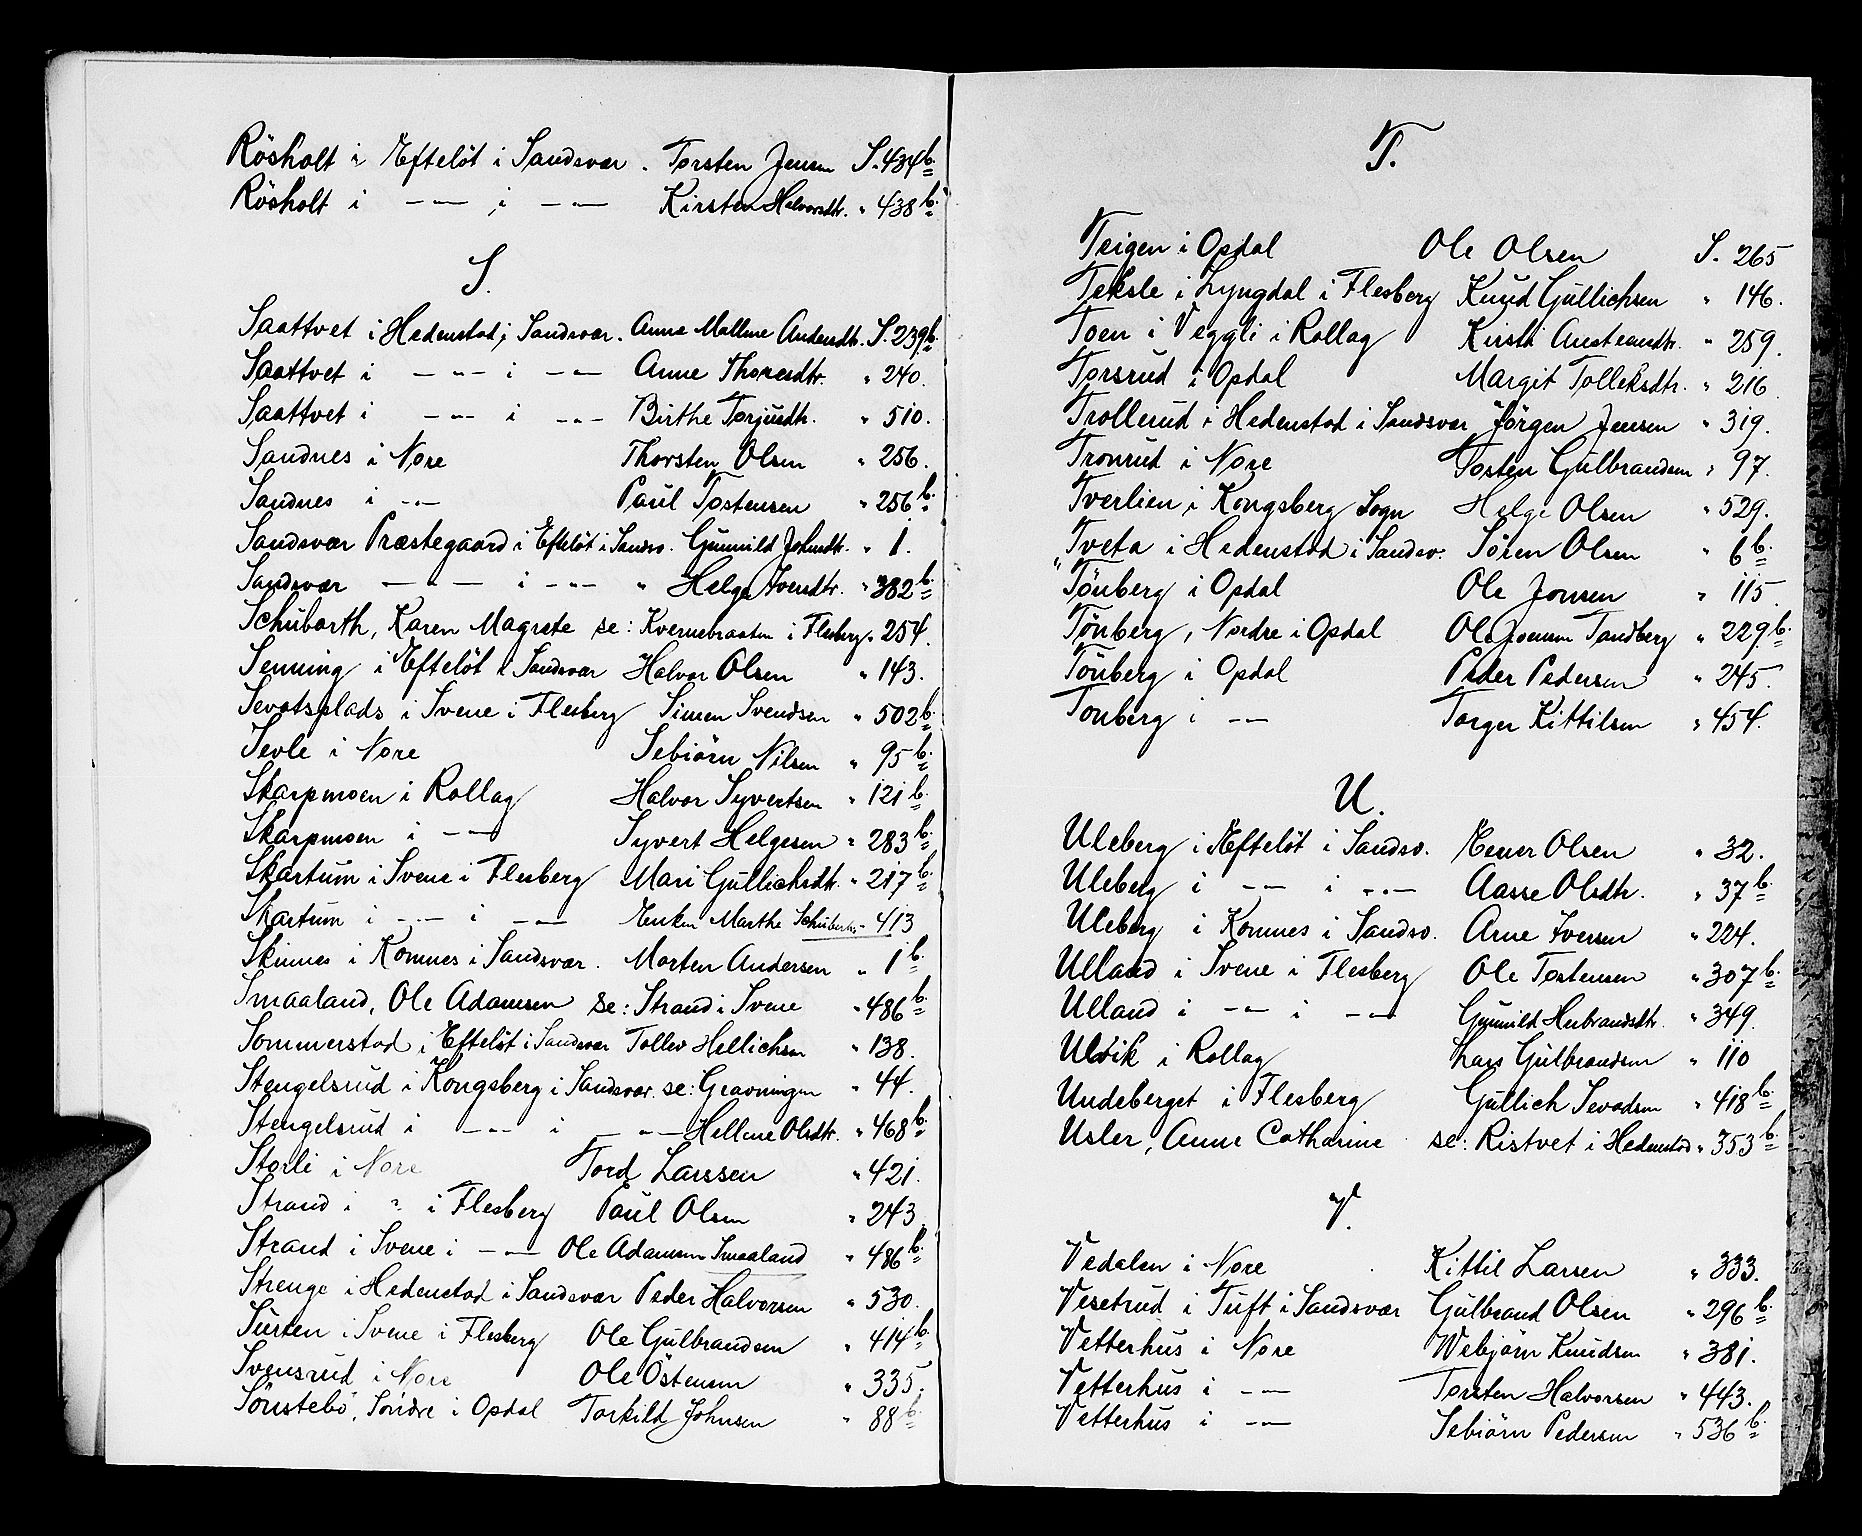 Rösholt i Efteløt i Sandsvær. Torsten Jensen S. 434 b.
Rösholt i -"- i -"- Kirsten Halvorsdtr. " 438 b.
S.
Saattvet i Hedenstad i Sandsvær. Anne Mallene Andersdtr. S. 239 b.
Saattvet i -"- i -"- Anne Thoresdtr. " 240.
Saattvet i -"- i -"- Birthe Torjusdtr. " 510.
Sandnes i Nore Thorsten Olsen " 256.
Sandnes i -"- Paul Tostensen " 256 b.
Sandsvær Præstegaard i Efteløt i Sandsv. Gunnild Johnsdtr. " 1.
Sandsvær -"- i -"- " Helge Iversdtr. " 382 b.
Schubarth, Karen Magrete se: Kvernebraaten i Flesberg. " 254.
Senning i Efteløt i Sandsvær Halvor Olsen " 143.
Sevatsplads i Svene i Flesberg Simen Svendsen " 502 b.
Sevle i Nore Sebiörn Nilsen " 95 b.
Skarpmoen i Rollag Halvor Syvertsen " 121 b.
Skarpmoen i -"- Syvert Helgesen " 283 b.
Skartum i Svene i Flesberg Mari Gullichsdtr. " 217 b.
Skartum i -"- i -"- Enken Marthe Schuberths " 413
Skinnes i Komnes i Sandsvær. Morten Andersen " 1 b.
Smaaland, Ole Adamsen se: Strand i Svene " 486 b.
Sommerstad i Efteløt i Sandsvær Tollev Hellichsen " 138.
Stengelsrud i Kongsberg i Sandsvær. se: Gravningen " 44.
Stengelsrud i -"- i -"- Hellene Olsdtr. " 468 b.
Storli i Nore Tord Larssen " 421.
Strand i " i Flesberg Paul Olsen " 243.
Strand i Svene i -"- Ole Adamsen Smaaland " 486 b.
Strenge i Hedenstad i Sandsvær Peder Halvorsen " 530.
Sürten i Svene i Flesberg Ole Gulbrandsen " 414 b.
Svensrud i Nore Ole Östensen " 335.
Sönstebö, Söndre i Opdal Torkild Johnsen " 88 b.
T.
Teigen i Opdal Ole Olsen S. 265
Teksle i Lyngdal i Flesberg Knud Gullichsen " 146.
Toen i Veggli i Rollag Kirsti Anstensdtr. " 259.
Torsrud i Opdal Margit Tolleksdtr. " 216
Trollerud i Hedenstad i Sandsvær Jörgen Jensen " 319.
Tronrud i Nore Tosten Gulbrandsen " 97.
Tverlien i Kongsberg Sogn Helge Olsen " 529.
Tveta i Hedenstad i Sandsv. Sören Olsen " 6 b.
"Tönberg i Opdal Ole Jonsen " 115.
Tönberg, Nordre i Opdal Ole Jonsen Tandberg " 229 b.
Tönberg i Opdal Peder Pedersen " 245.
Tonberg i -"- Torger Kittilsen " 454.
U.
Uleberg i Efteløt i Sandsv. Ener Olsen " 32.
Uleberg i -"- i -"- Aasse Olsdtr. " 37 b.
Uleberg i Komnes i Sandsv. Arne Iversen " 224.
Ulland i Svene i Flesberg Ole Tostensen " 307 b.
Ulland i -"- i -"- Gunnild Herbrandsdtr. " 349.
Ulvik i Rollag Lars Gulbrandsen " 110
Undeberget i Flesberg Gullich Sevadsen " 418 b.
Usler, Anne Catharine se: Ristvet i Hedenstad " 353 b.
V.
Vedalen i Nore Kittil Larsen " 333.
Vesetrud i Tuft i Sandsvær Gulbrand Olsen " 296 b.
Vetterhus i Nore Webjörn Knudsen " 381.
Vetterhus i -"- Torsten Halvorsen " 443.
Vetterhus i -"- Sebiörn Pedersen " 536 b.